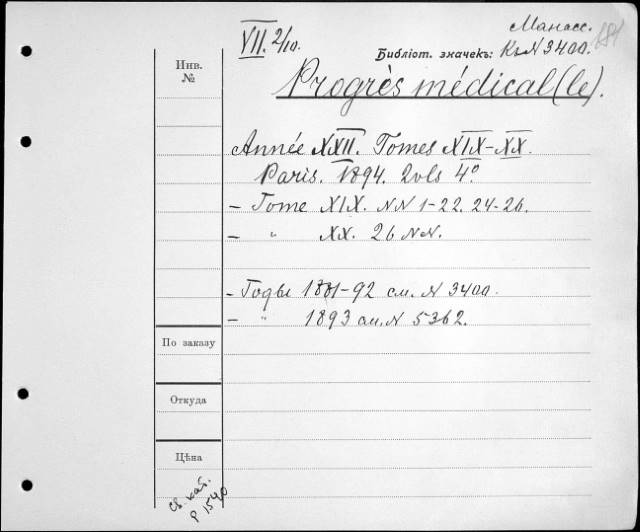 VII. 2/10.
Манасс.
Библіот. значекъ: Къ N 3400.
Инв. №
Progrès médical (le).
Année XXII. Tomes XIX-XX.
Paris. 1894. 2vls 4º
- Tome XIX. NN 1-22. 24-26.
- " XX. 26 NN.
- Годы 1881-92 см. N 3400.
- " 1893 см. N 5362.
По заказу
Откуда
Цѣна
Св. кат.
P 1540